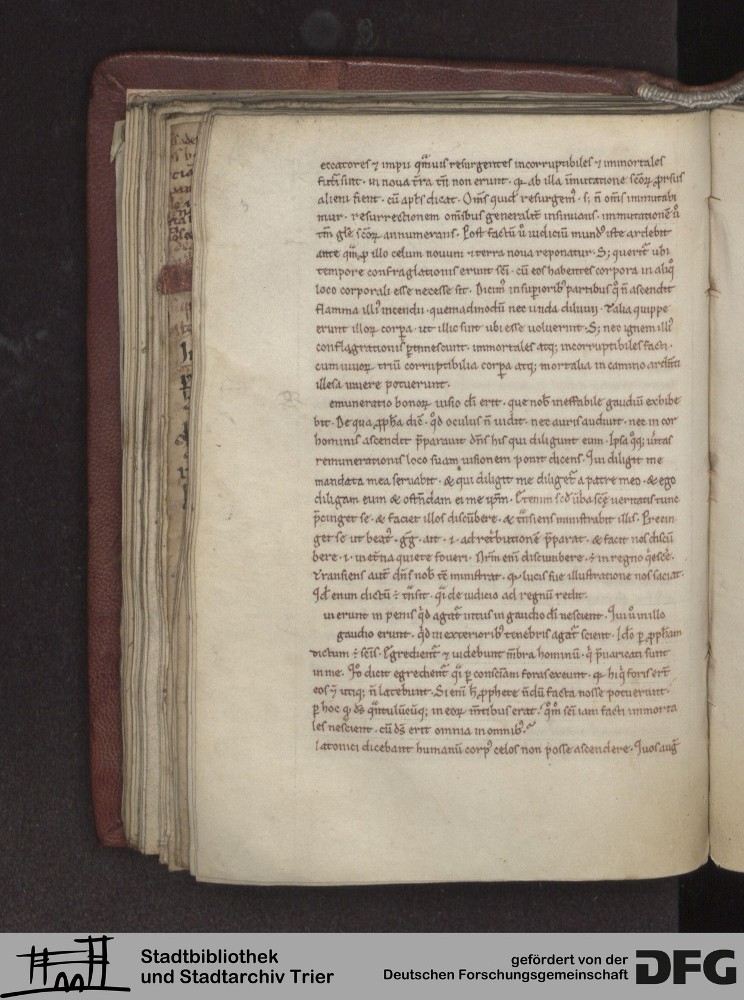 eccatores ⁊ impii qͣmuis resurgentes incorruptibiles ⁊ immortales
futuri sint · in noua t̄ra tn̄ non erunt · qꝫ ab illa īmutatione scōꝝ ꝓrsus
alieni fient · cū apłs dicat · Om̄s quidē resurgemꝰ · sꝫ n̄ om̄s immutabi
mur · resurrectionem om̄ibus generalit̄ insinuans · immutationē ū
tm̄ glę scōꝝ annumerans · Post factū ū iudiciū mundꝰ iste ardebit
ante qͣm ꝓ illo celum nouum ⁊ terra noua reponatur · Sꝫ querit̄ ubi
tempore conflagrationis erunt scī · cū eos habentes corpora in aliqͦ
loco corporali esse necesse sit · Dicimꝰ in supioribꝰ partibus qͦ n̄ ascendit
flamma illiꝰ incendii · quemadmodū nec unda diluuii · Talia quippe
erunt illoꝝ corꝑa · ut illic sint ubi esse uoluerint · Sꝫ nec ignem illiꝰ
conflagrationis ꝑtimescunt · immortales atqꝫ incorruptibiles facti ·
cum uiuoꝝ triū corruptibilia corꝑa atqꝫ mortalia in camino ardenti
illesa uiuere potuerunt ·
emuneratio bonoꝝ uisio dī erit · que nob̄ ineffabile gaudiū exhibe
bit · De qua ꝓpħa dic̄ · qd̄ oculus n̄ uidit · nec auris audiuit · nec in cor
hominis ascendit p̄parauit dn̄s his qui diligunt eum · Ipsa qͦqꝫ ūitas
remunerationis loco suam uisionem ponit dicens · Qui diligit me
mandata mea seruabit · & qui diligit me diliget̄ a patre meo · & ego
diligam eum & ostn̄dam ei me ipm̄ · Etenim scd̄ ūba scę ueritatis tunc
p̄cinget se · & faciet illos discūbere · & tͣnsiens ministrabit illis · Precin
get se ut beatꝰ · gg̅ · ait · ·i· ad ret̄butionē p̄parat · & facit nos discū
bere ·i· in et̄na quiete foueri · Nrm̄ eni discumbere · ÷ in regno qͥescē ·
Transiens aut̄ dn̄s nob̄ t̄c ministrat · qꝫ lucis suę illustratione nos saciat ·
Id̄ enim dictū ÷ tͣnsit · qͥ de iudicio ad regnū redit ·
ui erunt in penis qͥd agat̄ intus in gaudio dī nescient · Qui ū in illo
gaudio erunt · qͥd in exteriorib; tenebris agat̄ scient · Idō ꝑ ꝓpħam
dictum ÷ scīs · Egredient̄ ⁊ uidebunt m̄bra hominū · qͥ p̄uaricati sunt
in me · Qͦ dicit egredient̄ qͥ ꝑ conscīam foras exeunt · qꝫ hiqͥ foris ert̄
eos utiqꝫ n̄ latebunt · Si enī h̄ ꝓphete nd̄ū facta nosse potuerunt ·
ꝑ hoc qd̄ ds̄ in eoꝝ m̄tibus erat · qͦm scī iam facti immorta
les nescient · cū ds̄ erit omnia in omnibꝰ ·
latonici dicebant humanū corpꝰ celos non posse ascendere · Quos aug̅
Stadtbibliothek
und Stadtarchiv Trier
gefördert von der
Deutschen Forschungsgemeinschaft
DFG